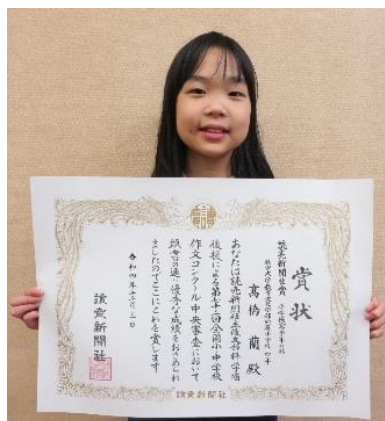 賞状
読売新聞社賞
四年
髙橋 蘭 殿
あなたは読売新聞社主催文部科学省
後援による第七十二回全国小中学校
作文コンクール中央審査において
頭書の通り優秀な成績をおさめられ
ましたのでここにこれを賞します
令和四年十二月三日
讀賣新聞社
讀賣新聞社